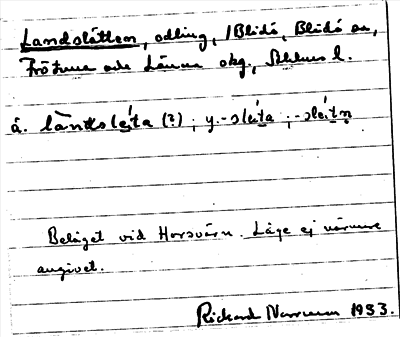 Landslätten, odling, /Blidö, Blidö sn,
Frötuna och Länna skg, Sthlms l.
å. landsleta (?) ; y. -sleta ; -sletn
Beläget vid Horsvärn. Läge ej närmare
angivet.
Rickard 1933.